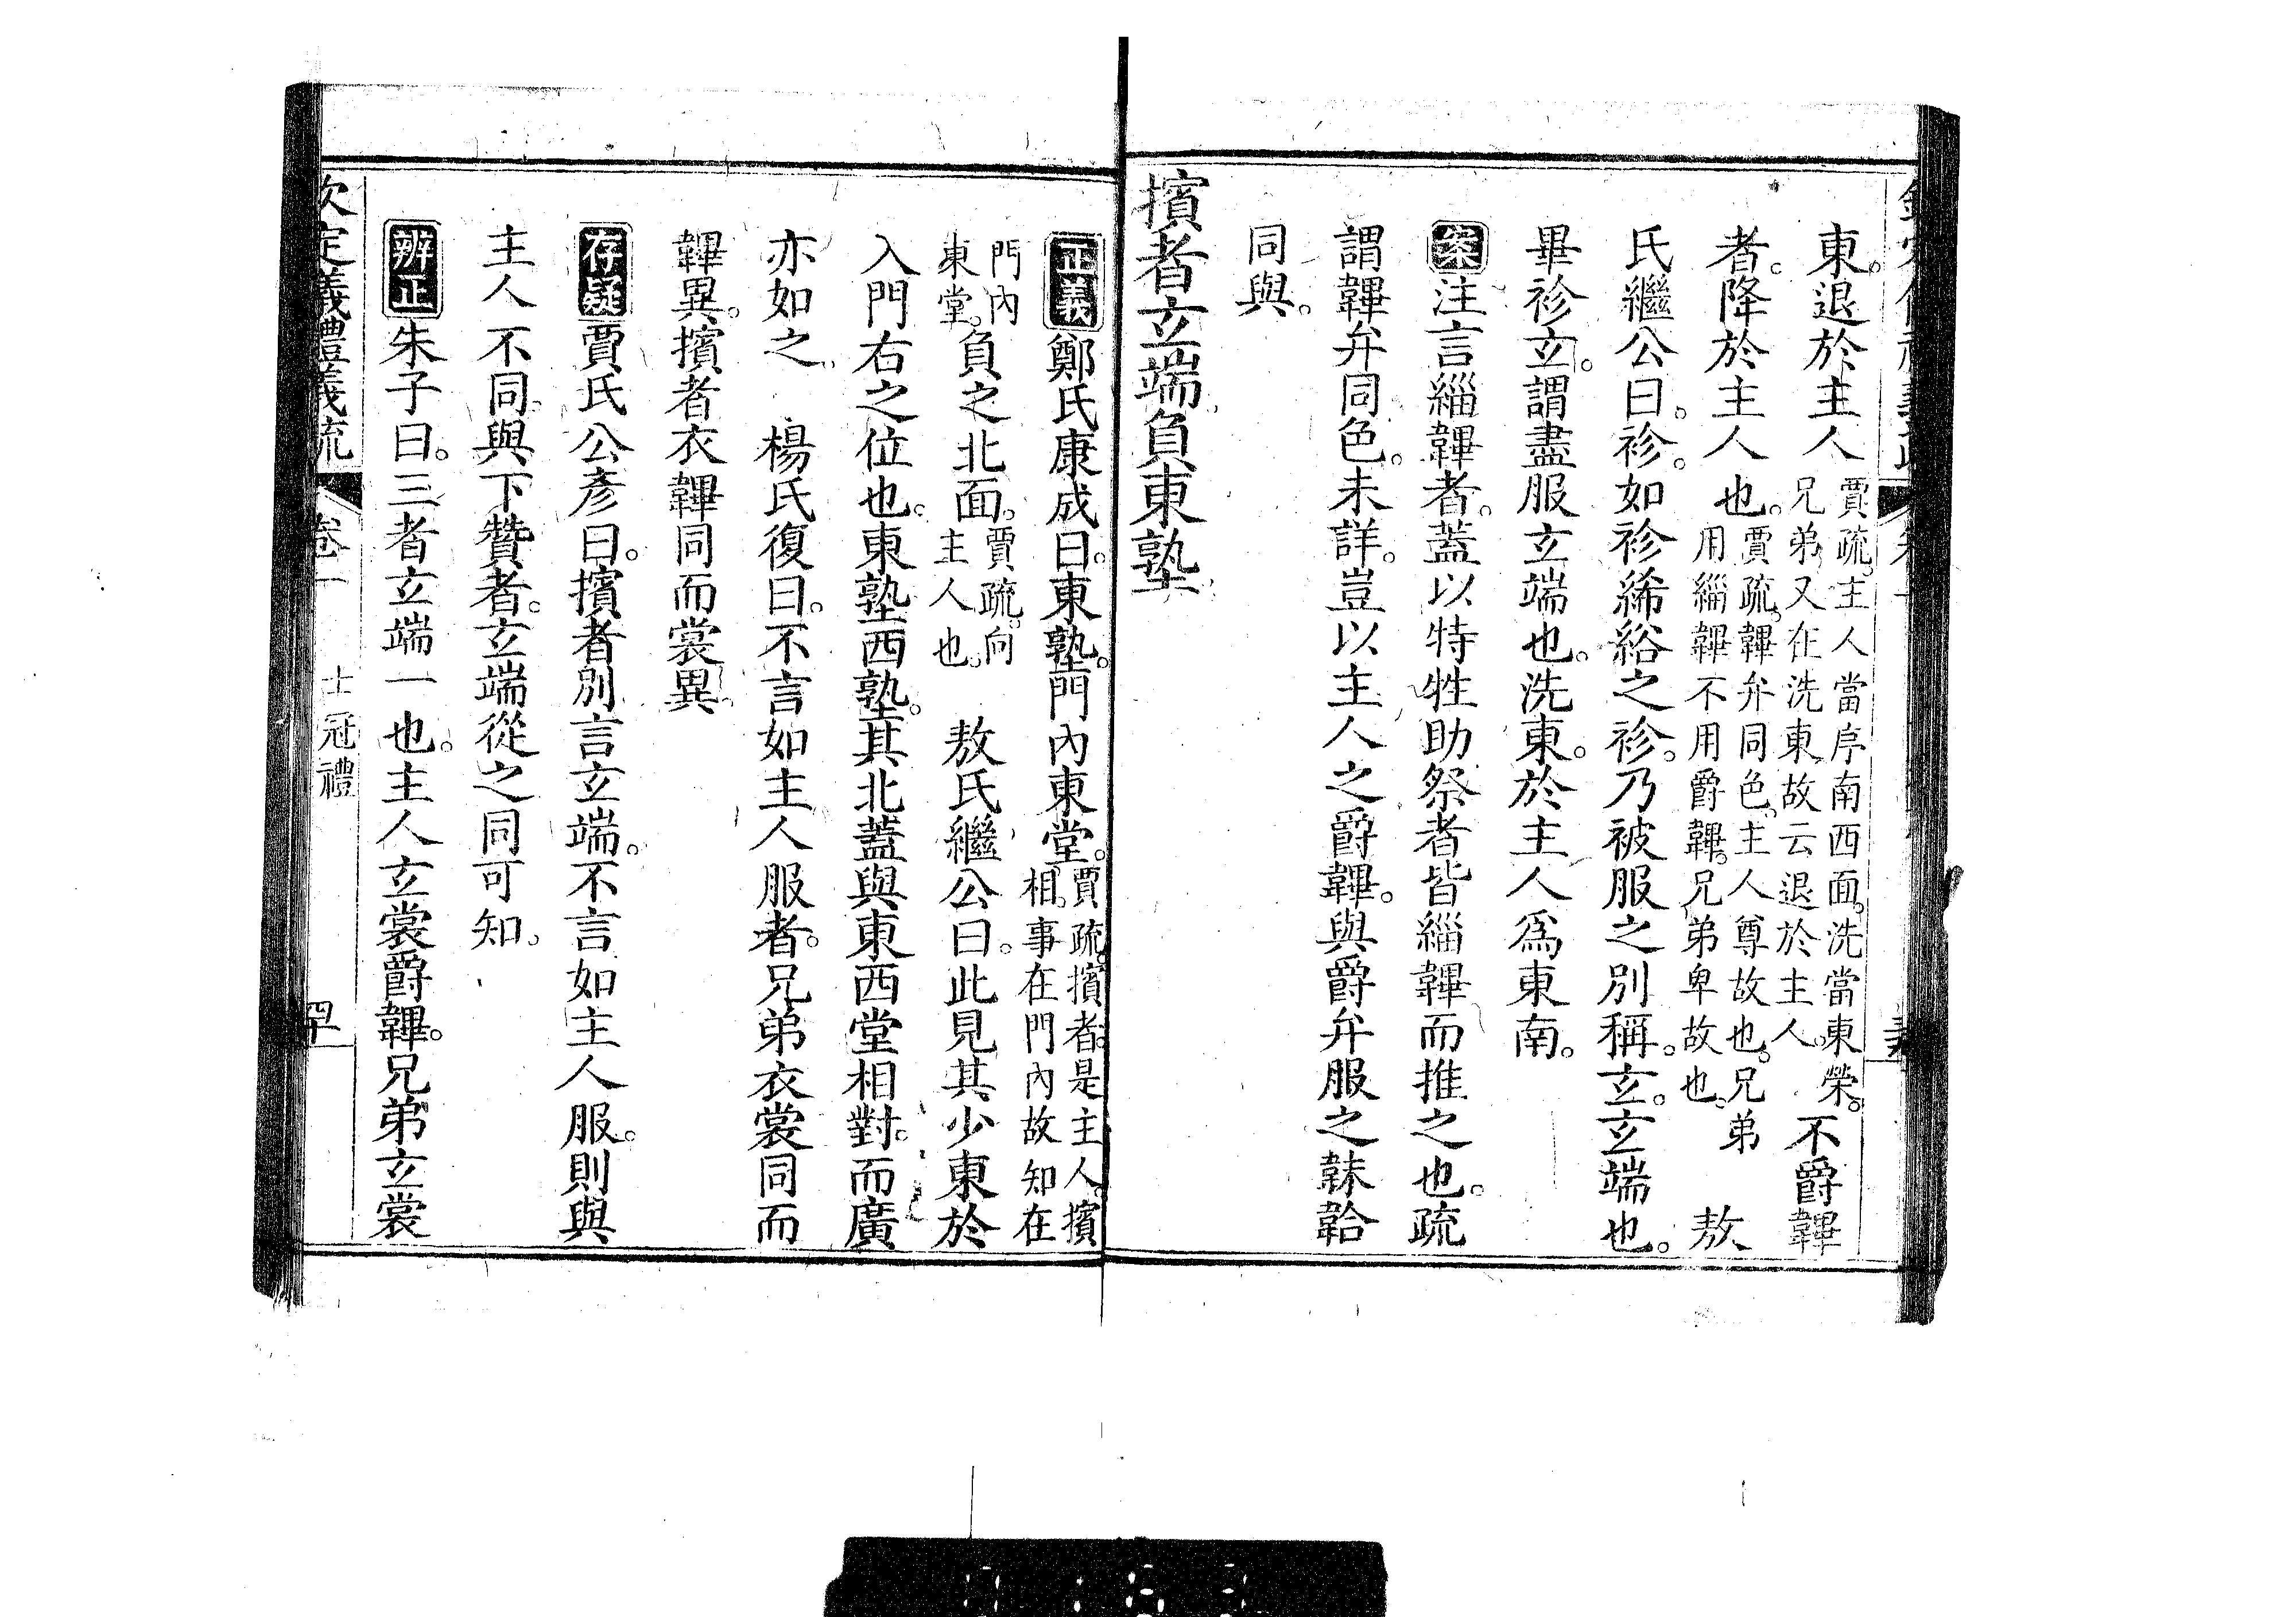 東。退於主人賈疏。主人當序南西面。洗當東榮。兄弟又在洗東故云退於主人。不爵韠
者。降於主人也。賈疏。韠弁同色。主人尊故也。兄弟用緇韠不用爵韠。兄弟卑故也。敖
氏繼公曰。袗。如袗絺綌之袗。乃被服之別稱。玄。玄端也。
畢袗玄。謂盡服玄端也。洗東。於主人爲東南。
案注言緇韠者。蓋以特牲助祭者皆緇韠而推之也。疏
謂韠弁同色。未詳。豈以主人之爵韠。與爵弁服之韎韐
同與。
擯者玄端負東塾
正義鄭氏康成曰。東塾。門內東堂。賈疏。擯者。是主人。擯相。事在門內故知在
門內東堂。負之北面。賈疏。向主人也。敖氏繼公曰。此見其少東於
入門右之位也。東塾西塾。其北蓋與東西堂相對。而廣
亦如之 楊氏復曰。不言如主人服者。兄弟衣裳同而
韠異。擯者衣韠同而裳異
存疑賈氏公彥曰。擯者別言玄端。不言如主人服。則與
主人不同。與下贊者。玄端從之同可知。
辨正朱子曰。三者玄端一也。主人玄裳爵韠。兄弟玄裳
欽定儀禮義疏 卷一 士冠禮